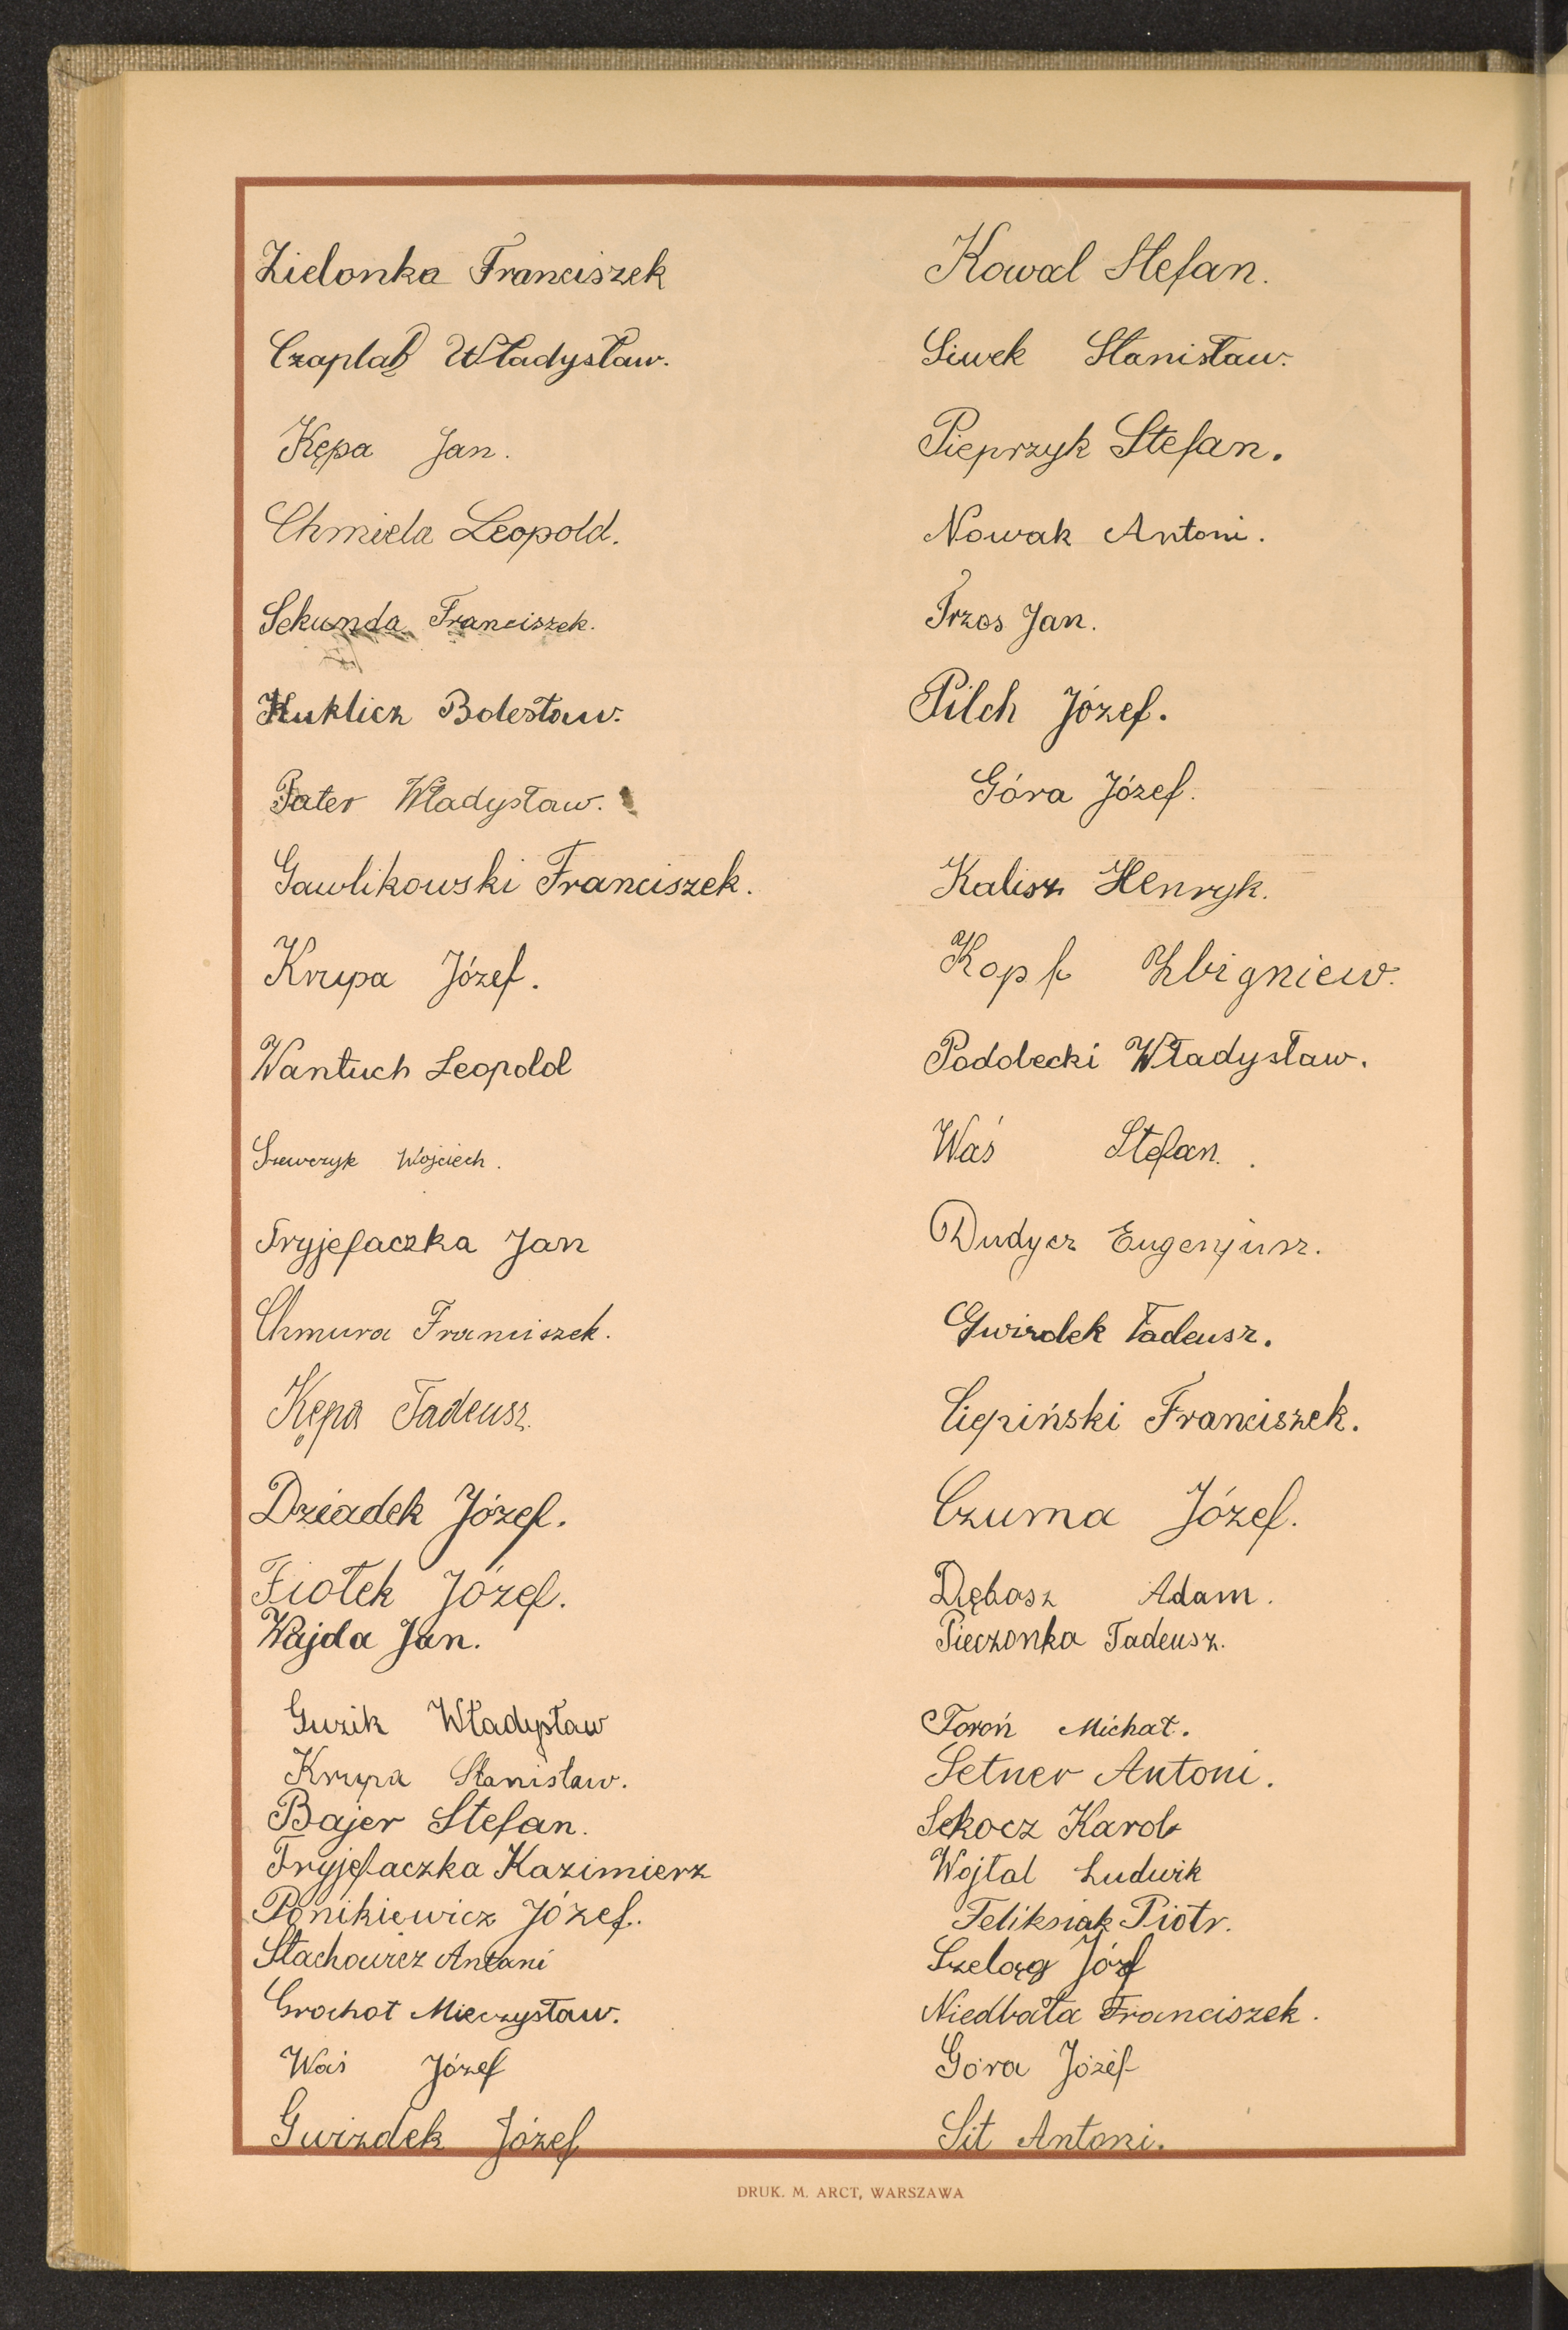 Zielonka Franciszek
Czaplak Władysław.
Kępa Jan.
Chmiela Leopold.
Sekunda Franciszek.
Kuklicz Bolesław.
Pater Władysław.
Gawlikowski Franciszek.
Krupa Józef.
Wantuch Leopold
Szewczyk Wojciech.
Tryjefaczka Jan
Chmura Franciszek.
Kępa Tadeusz.
Dziadek Józef.
Fiołek Józef.
Wajda Jan.
Guzik Władysław
Krupa Stanisław.
Bajer Stefan.
Tryjefaczka Kazimierz
Ponikiewicz Józef.
Stachowicz Antoni
Grochot Mieczysław.
Waś Józef
Gwizdek Józef
Kowal Stefan.
Siwek Stanisław.
Pieprzyk Stefan.
Nowak Antoni.
Trzos Jan.
Pilch Józef.
Góra Józef.
Kalisz Henryk.
Kopf Zbigniew.
Podolecki Władysław.
Waś Stefan.
Dudycz Eugenjusz.
Gwizdek Tadeusz.
Cierpiński Franciszek.
Czuma Józef.
Dębosz Adam.
Pieczonka Tadeusz.
Toroń Michał.
Setner Antoni.
Sekocz Karol
Wojtal Ludwik
Feliksiak Piotr.
Szeląg Józf
Niedbała Franciszek.
Góra Józef
Sit Antoni.
DRUK. M. ARCT, WARSZAWA